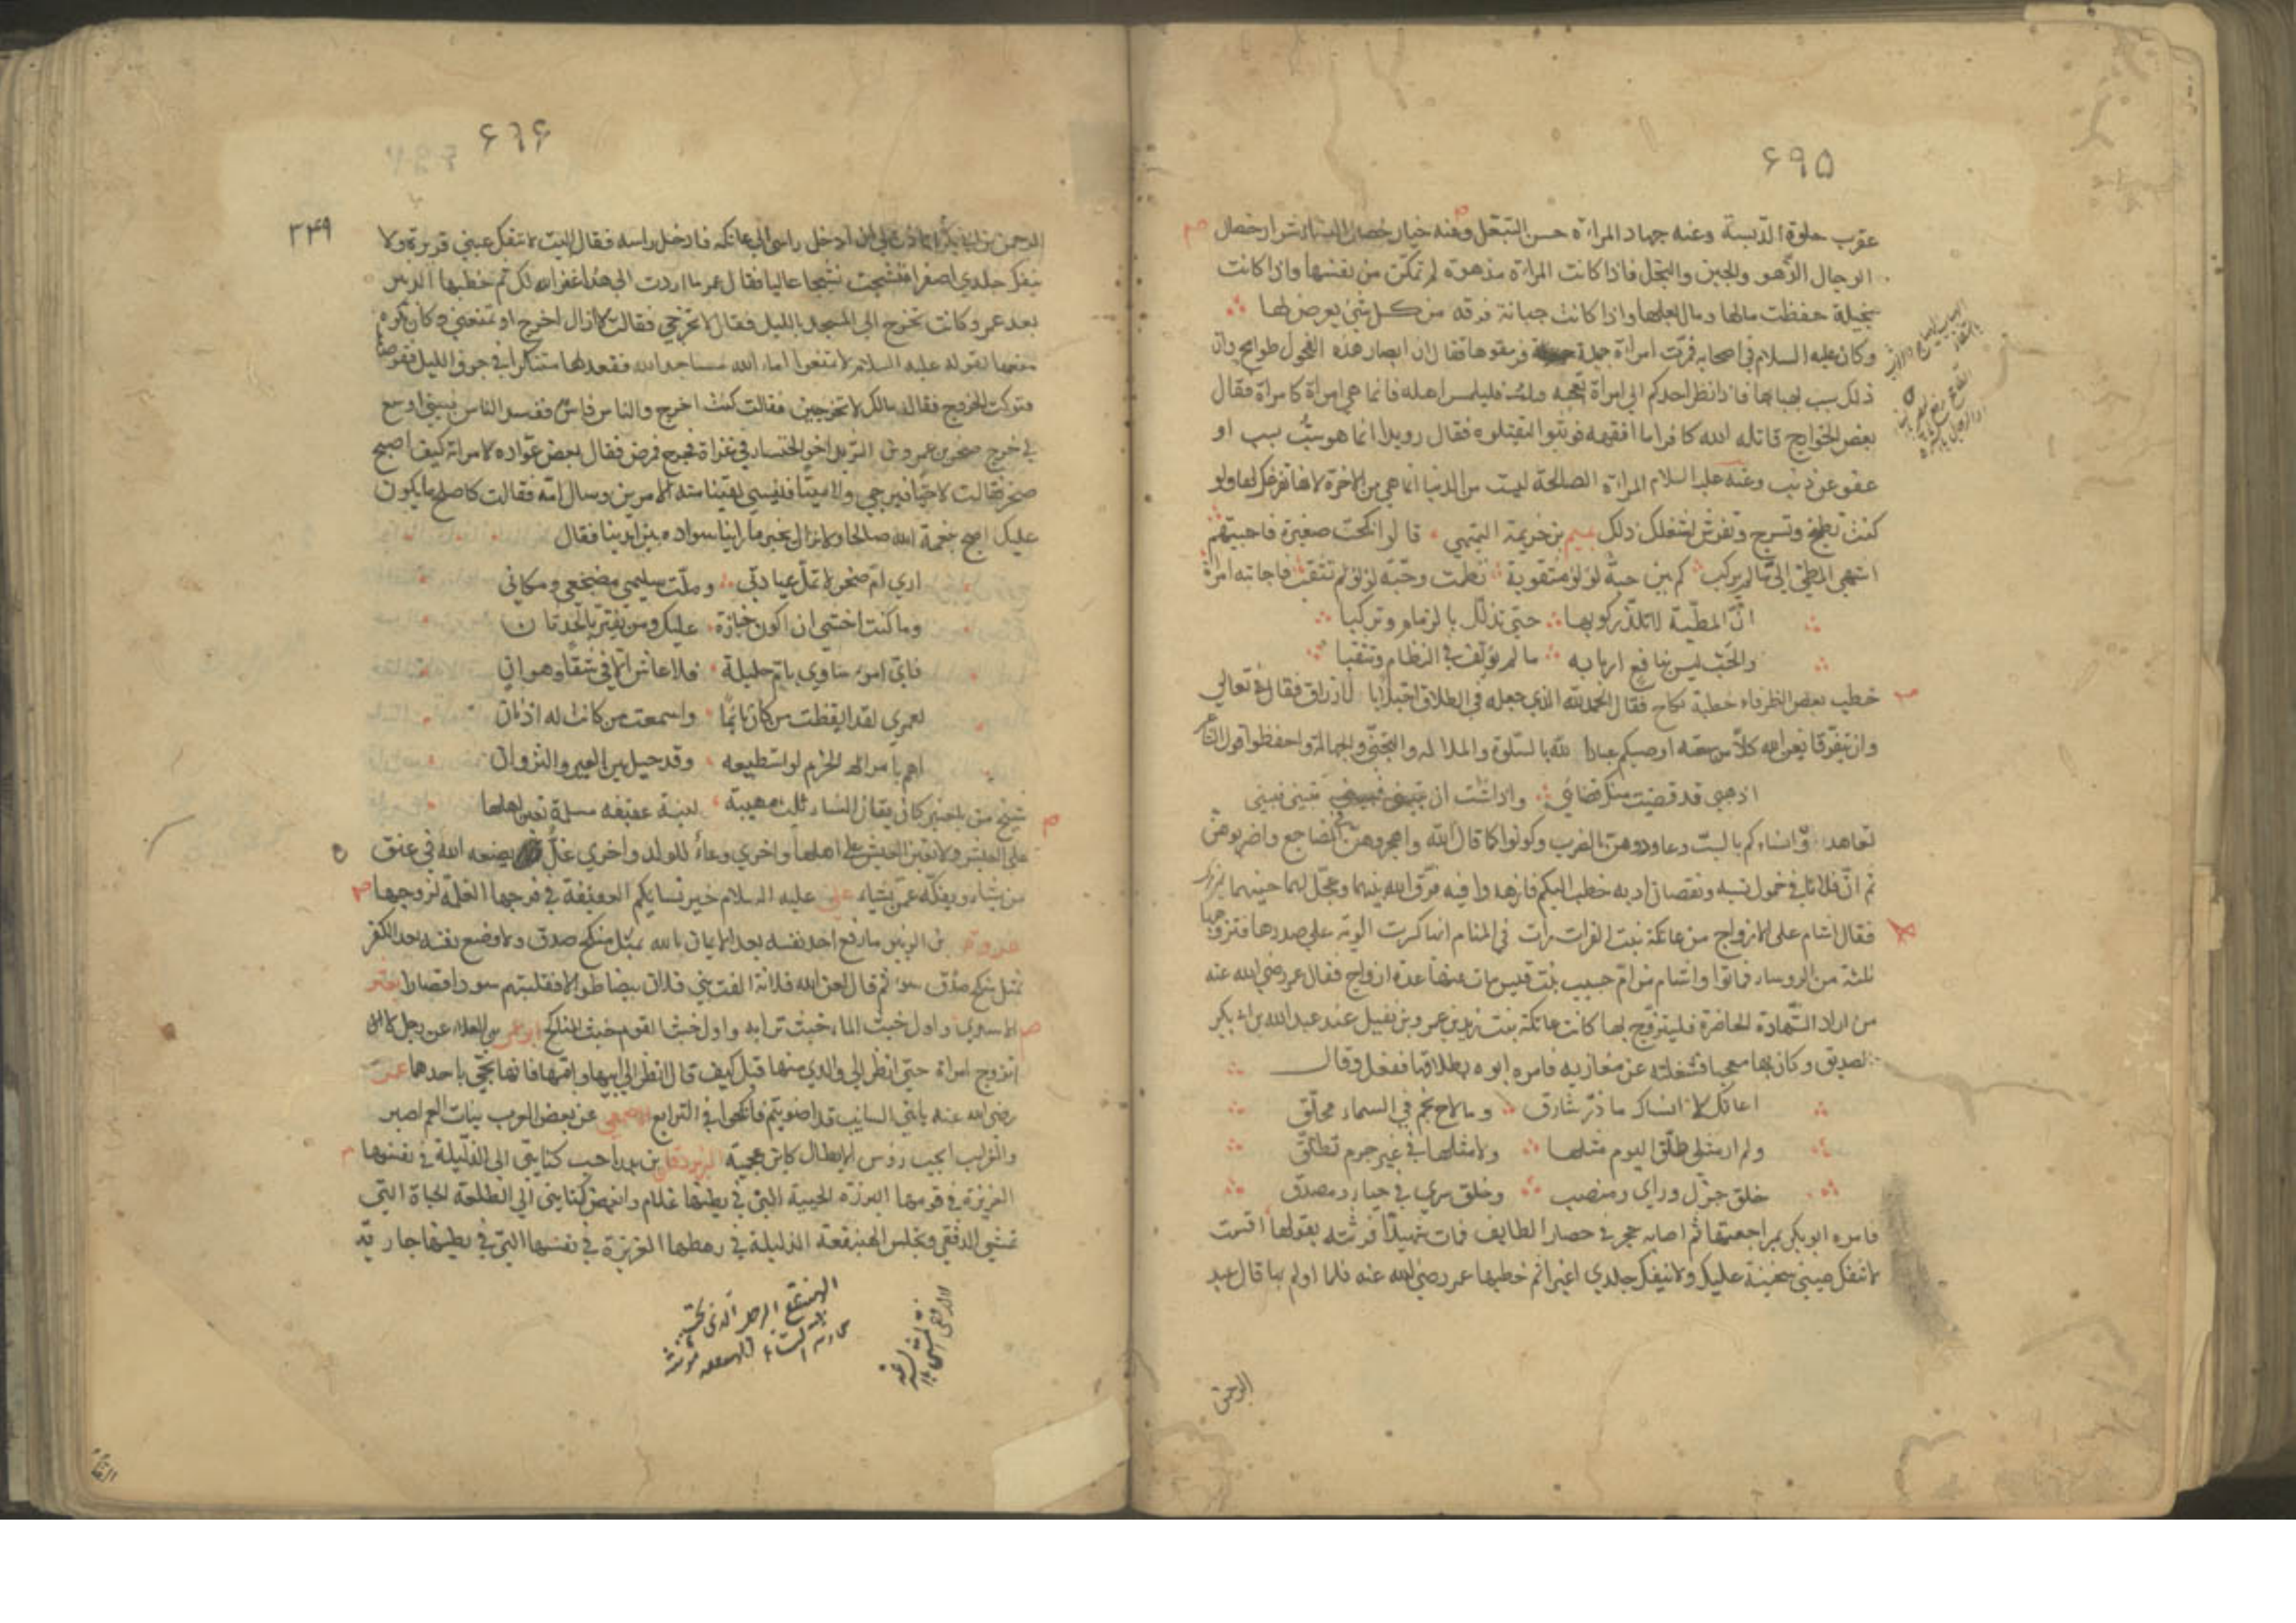 ۶۹۵
عقرب حلوة اللسبة وعنه جهاد المراة حسن التبعل وعنه خيار خصال النساء شرار خصال
الرجال الزهو والجبن والبخل فاذا كانت المراة مزهوة لم تمكن من نفسها واذا كانت
بخيلة حفظت مالها ومال بعلها واذا كانت جبانة فرقه من كل شئ يعرض لها
وكان عليه السلام في اصحابه فمرت امراة جميلة فرمقوها فقال ان ابصار هذه الفحول طوامح وان
ذلك سبب هبابها فاذا نظر احدكم الى امراة تعجبه فليلمس اهله فانما هي امراة كامراة فقال
بعض الخوارج قاتله الله كافرا ما افقهه فوثبوا ليقتلوه فقال رويدا انما هو سب بسب او
عفو عن ذنب وعنه عليه السلام المراة الصالحة ليست من الدنيا انما هي من الاخرة لانها تفرغك لها ولو
كنت تطبخ وتسرج وتفرش لشغلك ذلك خزيمة التميمي قالوا نكحت صغيرة فاجبتهم
اشهى المطي الي ما لم يركب كم بين حبة لؤلؤ مثقوبة نظمت وحبة لؤلؤ لم تثقب فاجابته امراة
ان المطية لا تلذ ركوبها حتى تذلل بالزمام وتركبا
والحب ليس بنافع اربابه ما لم يؤلف في النظام وتثقبا
خطب بعض الظرفاء خطبة نكاح فقال الحمد لله الذي جعله في الطلاق ارزاق فقال تعالى
وان يتفرقا يغن الله كلا من سعته اوصيكم عباد الله بالسلوة والملالة والتجني والجهالة واحفظوا قول الشاعر
اذهبي قد قضيت منك قضائي واذا شئت ان تبيني فبيني
تعاهدوا نساءكم بالسب وعاودوهن بالضرب وكونوا كما قال الله واهجروهن في المضاجع واضربوهن
ثم ان فلانا في خمول نسبه ونقصان ادبه خطب اليكم فازهدوا فيه فرق الله بينهما وعجل لهما حينهما
فقال اشام على الازواج من عاتكة بنت الفرات رات في المنام انما كسرت الوية على صدرها فتزوجها
ثلثة من الروساء فماتوا واشام من ام حبيب بنت قيس مات عنها عدة ازواج فقال عمر رضي الله عنه
من اراد الشهادة الحاضرة فليتزوج بها كانت عاتكة بنت زيد بن عمرو بن نفيل عند عبد الله بن ابي بكر
الصديق وكان بها معجبا فشغلته عن مغازيه فامره ابوه بطلاقها ففعل وقال
اعاتك لا انساك ما ذر شارق وما لاح نجم في السماء محلق
ولم ار مثلي طلق اليوم مثلها ولا مثلها في غير جرم تطلق
خلق جزل وراي ومنصب وخلق سوي في حياء ومصدق
فامره ابو بكر بمراجعتها ثم اصابه حجر في حصار الطايف فمات شهيدا فرثته بقولها اقسمت
لا تنفك عيني سخينة عليك ولا ينفك جلدي اغبرا ثم خطبها عمر رضي الله عنه فلما اولم بها قال عبد
الرحمن
۶۹۶
۳۴۹
الرحمن بن ابي بكر اتاذن لي ان ادخل راسي الى عاتكة فادخل راسه فقال اليت لا تنفك عيني قريرة ولا
ينفك جلدي اصفرا فنشجت نشيجا عاليا فقال عمر ما اردت الى هذا غفر الله لك ثم خطبها الزبير
بعد عمر وكانت تخرج الى المسجد بالليل فقال لا تخرجي فقالت لا ازال اخرج او تمنعني وكان يكره
منعها لقوله عليه السلام لا تمنعوا اماء الله مساجد الله فقعد لها متنكرا في جوف الليل فقرصها
فتركت الخروج فقال مالك لا تخرجين فقالت كنت اخرج والناس ناس ففسد الناس فبيتي اوسع
لي خرج صخر بن عمرو بن الشريد اخو الخنساء في غزاة فجرح فمرض فقال بعض عواده لامراته كيف اصبح
صخر فقالت لا حيا فيرجى ولا ميتا فينسى لقينا منه الامرين وسال امه فقالت كاصلح ما يكون
عليك اصبح بنعمة الله صالحا ولا يزال بخير ما راينا سواده بين ايدينا فقال
ارى ام صخر لا تمل عيادتي وملت سليمى مضجعي ومكاني
وما كنت اخشى ان اكون جنازة عليك ومن يغتر بالحدثان
فاي امرء ساوى بام حليلة فلا عاش الا في شقا وهوان
لعمري لقد ايقظت من كان نايما واسمعت من كانت له اذنان
اهم بامر الحزم لو استطيعه وقد حيل بين العير والنزوان
شيخ من كان يقال النساء ثلث لينة عفيفة مسلمة تعين اهلها
على العيش ولا تعين العيش على اهلها واخرى وعاء للولد واخرى غل يضعه الله في عنق
من يشاء ويفكه عمن يشاء علي عليه السلام خير نسايكم العفيفة في فرجها الغلمة لزوجها
عروة بن الزبير ما رفع احد نفسه بعد الايمان بالله بمثل منكح صدق ولا وضع نفسه بعد الكفر
بمثل منكح سوء ثم قال لعن الله فلانة الفت بني فلان بيضا طوالا فقلبتهم سودا قصارا
واول خبث الماء خبث ترابه واول خبث القوم خبث المناكح ابو عمرو بن العلاء عن رجل قال لا
اتزوج امراة حتى انظر الى ولدي منها قيل كيف قال انظر الى ابيها وامها فانها تجئ باحدهما عمر
رضي الله عنه يا بني السائب قد اضويتم فانكحوا في النزايع الاصمعي عن بعض العرب بنات العم اصبر
والغرايب انجب وما ضرب رؤس الابطال كابن عجمية الزبرقان بن بدر احب كنايني الى الذليلة في نفسها
العزيزة في قومها البرزة الحيية التي في بطنها غلام وابغض كنايني الي الطلعة الخباة التي
تمشي الدفقى وتجلس الهبنقعة الذليلة في رهطها العزيزة في نفسها التي في بطنها جارية